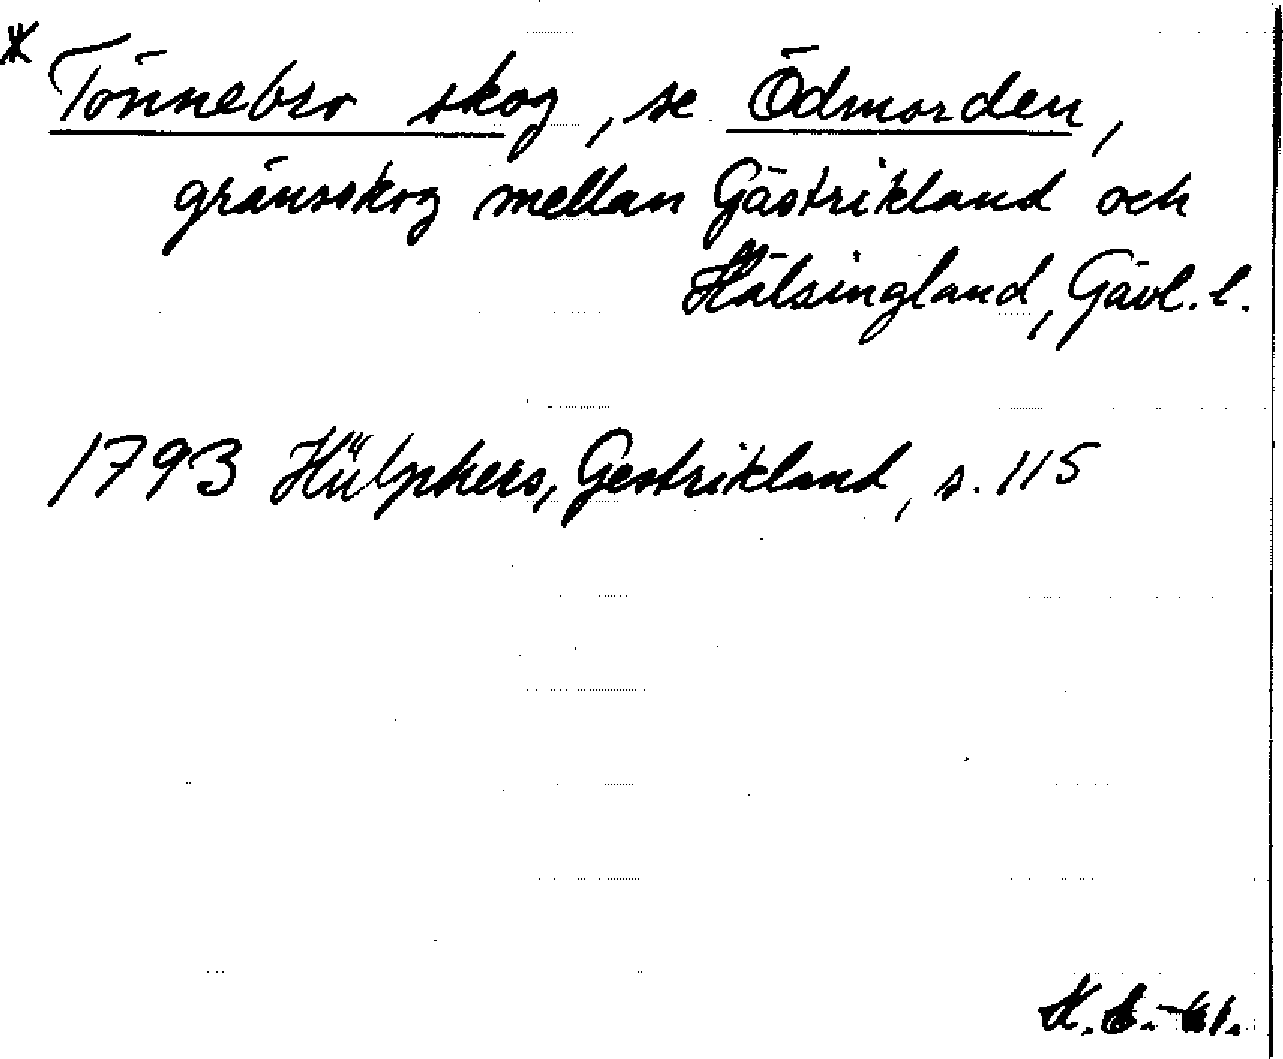 * Tönnebro skog, se Ödmorden,
gränsskog mellan Gästrikland och
Hälsingland, Gävl. l.
1793 Hülphers, Gestrikland, s. 115